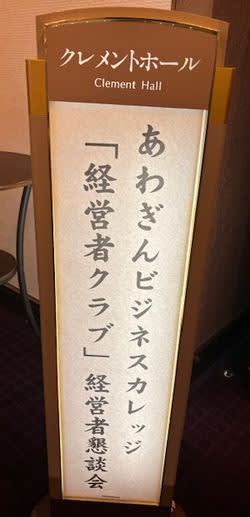 クレメントホール
Clement Hall
あわぎんビジネスカレッジ
「経営者クラブ」経営者懇談会